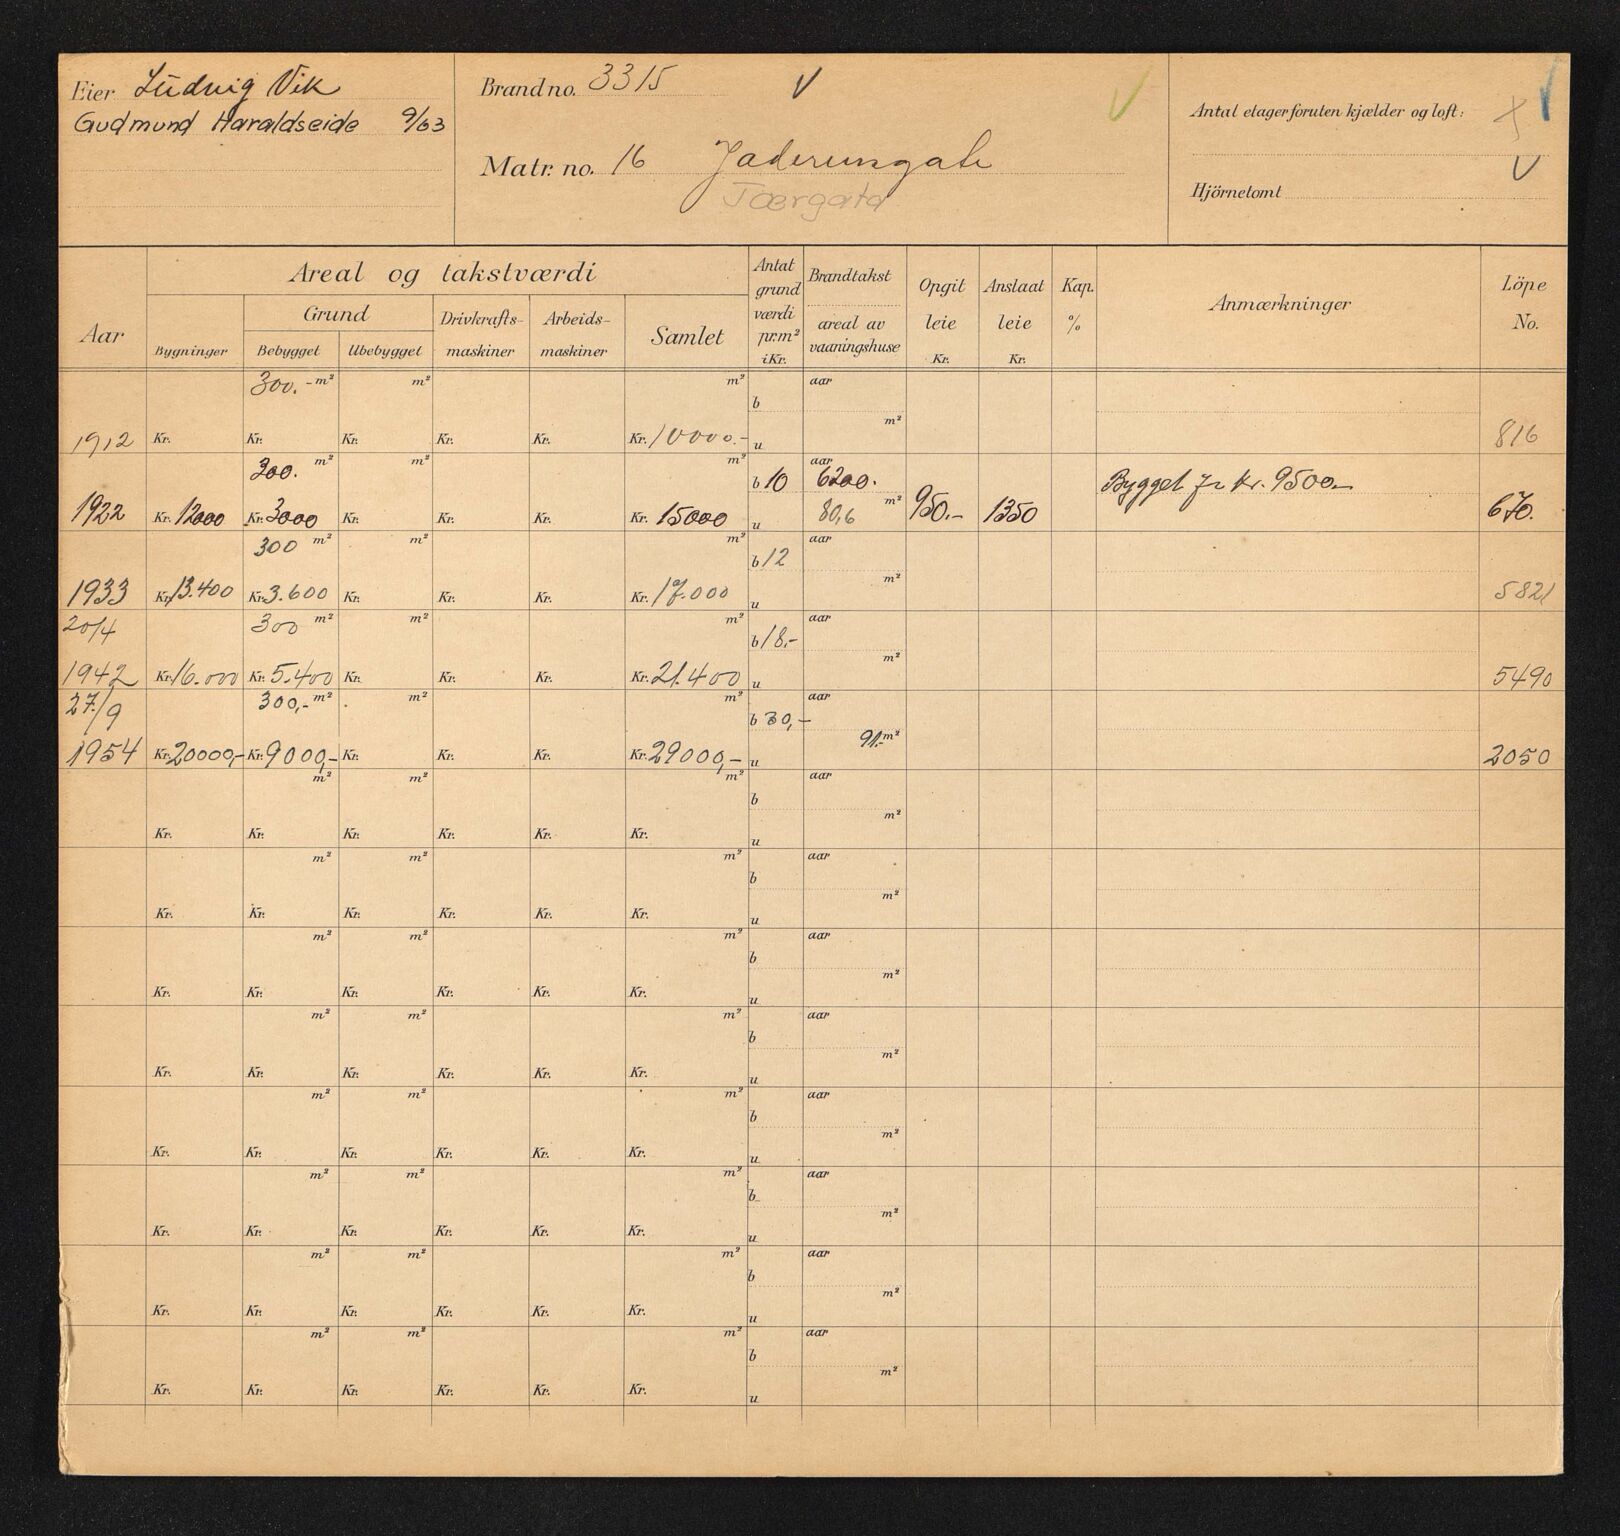 Eier Ludvig Vik
Gudmund Haraldseide 9/63
Brand no. 3315 V
Matr. no. 16 Jaderensgate
Tærgata
Antal etager foruten kjælder og loft:
Hjörnetomt
Aar
Areal og takstværdi
Grund
Bygninger
Bebygget
Ubebygget
Drivkrafts-
maskiner
Arbeids-
maskiner
Samlet
Antat
grund
værdi
pr.m²
i Kr.
Brandtakst
areal av
vaaningshuse
Opgit
leie
Kr.
Anslaat
leie
Kr.
Kap.
%
Anmærkninger
Löpe
No.
300.- m² m² m² b aar
m²
1912 Kr. Kr. Kr. Kr. Kr. Kr. 10000.- u 816
300. m² m² m² b 10 aar 6200.
Bygget for kr. 9500.-
1922 Kr. 12000 Kr. 3000 Kr. Kr. Kr. Kr. 15000 u 80,6 m² 950.- 1350 670.
300 m² m² m² b 12 aar
m²
1933 Kr. 13.400 Kr. 3.600 Kr. Kr. Kr. Kr. 17.000 u 5821
20/4 300 m² m² m² b 18.- aar
m²
1942 Kr. 16.000 Kr. 5.400 Kr. Kr. Kr. Kr. 21.400 u 5490
27/9 300,- m² m² m² b 30,- aar
91.- m²
1954 Kr. 20000,- Kr. 9000,- Kr. Kr. Kr. Kr. 29000,- u 2050
m² m² m² aar
b m²
Kr. Kr. Kr. Kr. Kr. Kr. u
m² m² m² aar
b m²
Kr. Kr. Kr. Kr. Kr. Kr. u
m² m² m² aar
b m²
Kr. Kr. Kr. Kr. Kr. Kr. u
m² m² m² aar
b m²
Kr. Kr. Kr. Kr. Kr. Kr. u
m² m² m² aar
b m²
Kr. Kr. Kr. Kr. Kr. Kr. u
m² m² m² aar
b m²
Kr. Kr. Kr. Kr. Kr. Kr. u
m² m² m² aar
b m²
Kr. Kr. Kr. Kr. Kr. Kr. u
m² m² m² aar
b m²
Kr. Kr. Kr. Kr. Kr. Kr. u